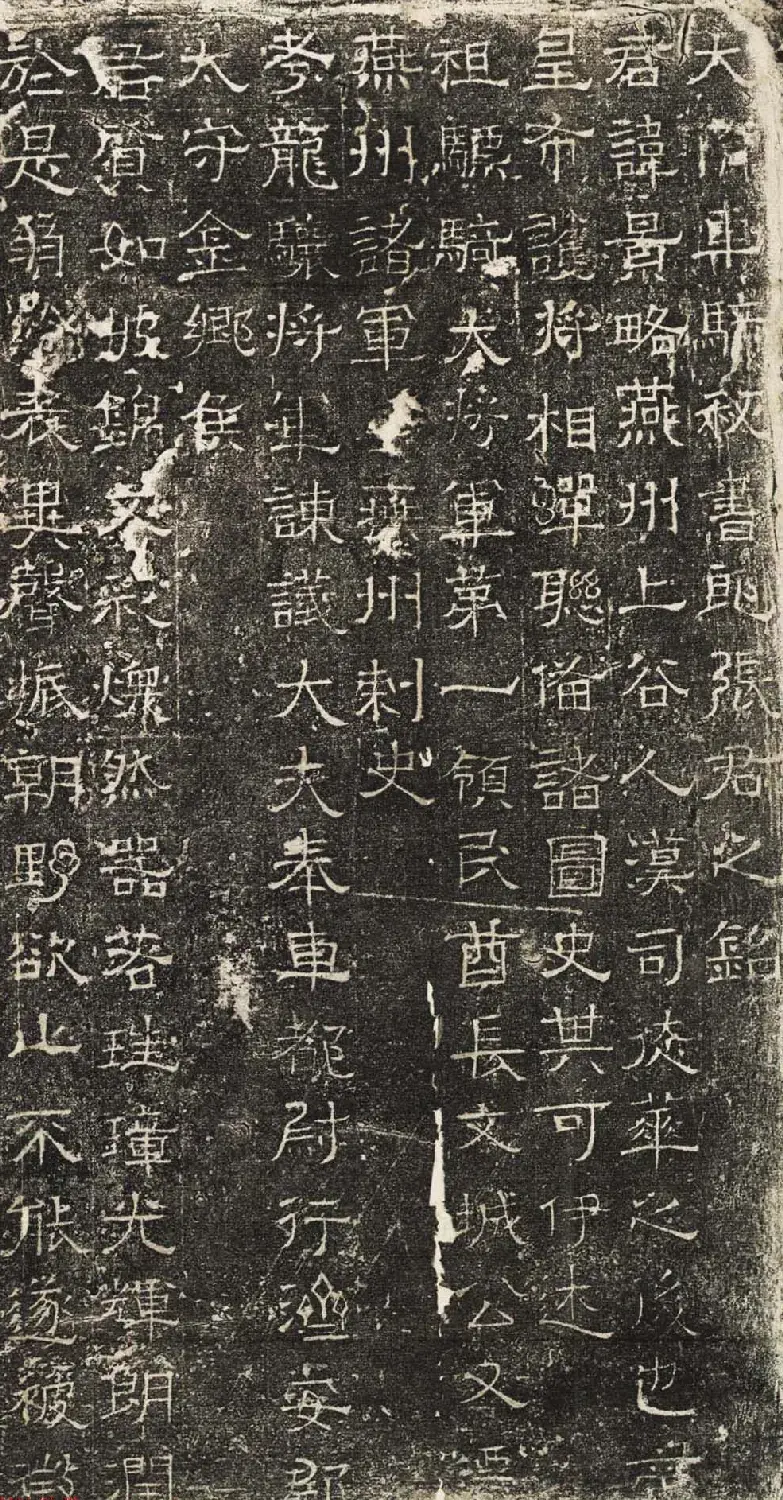 大隋車騎秘書郎張君之銘
君諱景略燕州上谷人漢司徒華之後也若
皇布護將相蟬聯備諸圖史其可伊述
祖驃騎大將軍第一領民酋長文城公又
燕州諸軍燕州刺史
考龍驤將軍諫議大夫奉車都尉行濟安郡
太守金鄉侯
君質如披錦文彩燦然器若珪璋光輝朗潤
於是羽衣異聲振朝野欲止不能遂